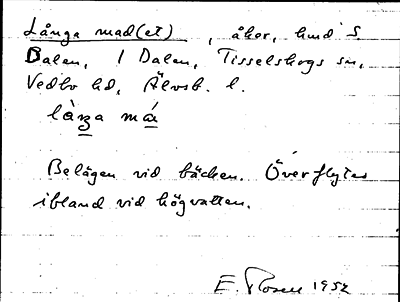 Långa mad(et), åker, hmd S.
Dalen, 1 Dalen, Tisselskogs sn,
Vedbo hd, Älvsb. l.
må
Belägen vid bäcken. Överflytes
ibland vid högvatten.
E. Rosell 1952